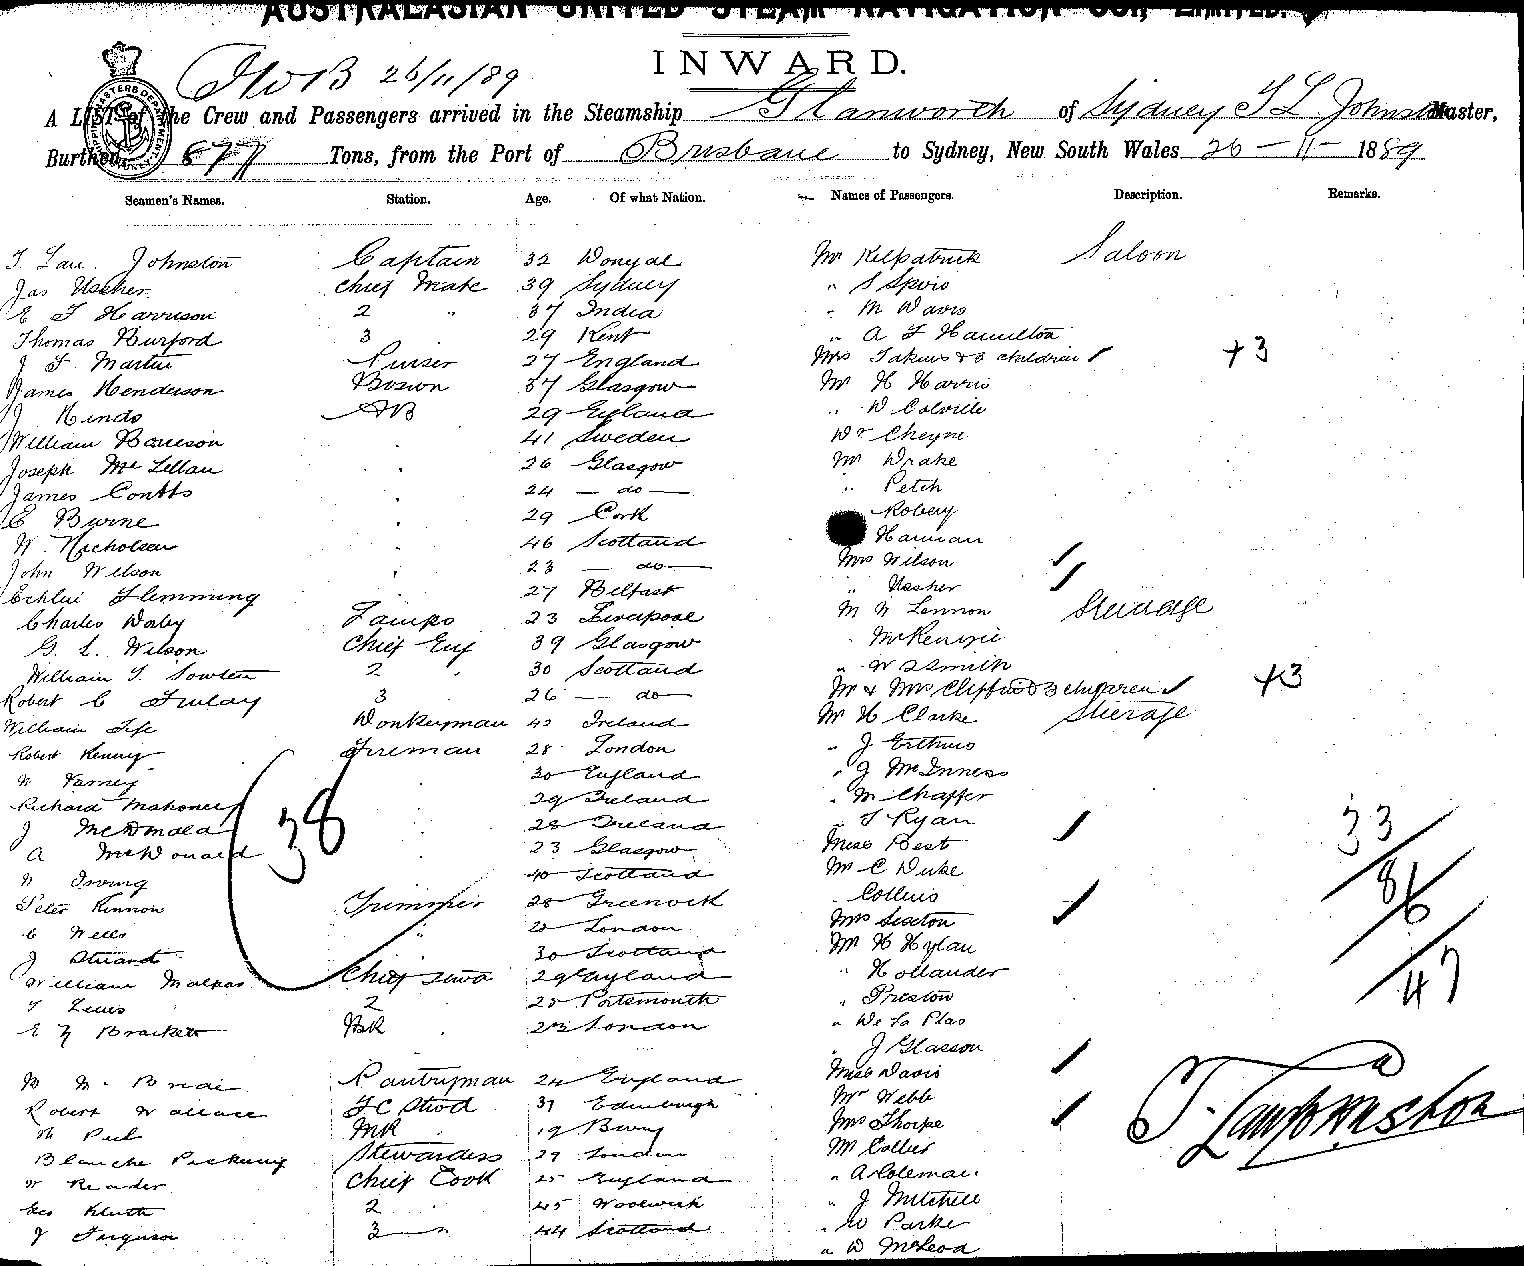 AUSTRALASIAN UNITED STEAM NAVIGATION COY., LIMITED.
INWARD.
26/11/89
A LIST of the Crew and Passengers arrived in the Steamship Glanworth of Sydney T L Johnston Master,
Burthen 877 Tons, from the Port of Brisbane to Sydney, New South Wales 26 - 11 - 1889
Seamen's Names. Station. Age. Of what Nation. Names of Passengers. Description. Remarks.
T. Law. Johnston Captain 32 Donegal Mr Kilpatrick Saloon
Jas Ussher Chief Mate 39 Sydney " S Spiro
E T Harrison 2 " 37 India " M Davis
Thomas Burford 3 29 Kent " A F Hamilton
J F. Martin Purser 27 England Mrs & 3 children +3
James Henderson Bosun 37 Glasgow Mr H Harris
J Hinds AB 29 England " D Colville
William 41 Sweden Dr Cheyne
Joseph McLellan 26 Glasgow Mr Drake
James Coutts 24 — do — " Petch
C Byrne 29 Cork Robery
W. Nicholson 46 Scotland Harman
John Wilson 23 — do — Mrs Wilson
Flemming 27 Belfast " Ussher
Charles Darby Lamps 23 Liverpool M N Lennon Steerage
G. L. Wilson Chief Eng 39 Glasgow " McKenzie
William T. Sowten 2 " 30 Scotland " W Smith
Robert C Finlay 3 26 — do — Mr & Mrs Clifford & 3 children +3
William Fife Donkeyman 42 Ireland Mr H Clarke Steerage
Robert Kenny Fireman 28 London " J
W Varney 30 England " J McInness
Richard Mahoney 29 Ireland " M Chaffer
38
J McDonald 28 Ireland " T Ryan 33
A McDonald 23 Glasgow Miss Best
W Irving 40 Scotland Mr C Duke 86
Peter Kinnon Trimmer 28 Greenock Collins
C Wells " 20 London Mrs Sexton
J Stuart 30 Scotland Mr H Hylan
William Malpas Chief Stwd 29 England " Hollander 47
T Lewis 2 25 Portsmouth " Preston
E Y Brackett BR 23 London " De La Plas
" J Glasson
Pantryman 24 England Miss Davis
Robert Wallace F C Stwd 37 Edinburgh Mr Webb
M Peel MR 19 Bury Mrs Thorpe T. Law Johnston
Blanche Pickering Stewardess 29 London Mr Collier
W Reader Chief Cook 25 England " A Coleman
Geo Kluth 2 45 Woolwich " J Mitchell
J Ferguson 3 44 Scotland " W Parke
" D McLeod